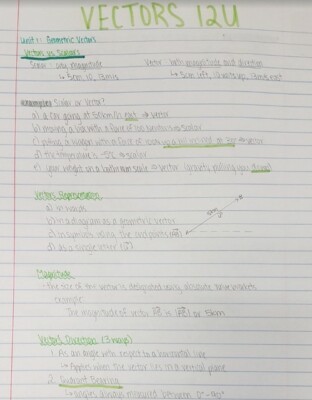 VECTORS 12U
Unit 1: Geometric Vectors
Vectors vs Scalars
Scalar - only magnitude Vector both magnitude and direction
↳ 5cm, 10, 13m/s ↳ 5cm left,
Examples Scalar or Vector?
a) a car going at 50km/h east → vector
b) moving a box with a force of → scalar
c) pulling a wagon with a force of → vector
d) the temperature is -5°C → scalar
e) your weight on a bathroom scale → vector (gravity pulling you down)
Vectors Represented
a) in words
b) in a diagram as a geometric vector
c) in symbols using the endpoints (AB)
d) as a single letter
5km
Magnitude
- the size of the vector is designated using absolute value brackets
example
The magnitude of vector AB is |AB| or 5km
Vector Direction (3 ways)
1. As an angle with respect to a horizontal line
↳ Applies when the vector lies in a vertical plane
2. Quadrant Bearing
↳ angles always measured between 0° - 90°